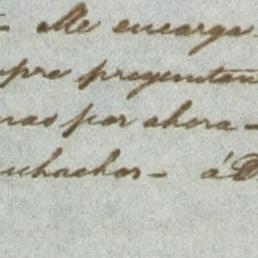 Me encarga
pre preguntan
mas por ahora -
uchachos - á D